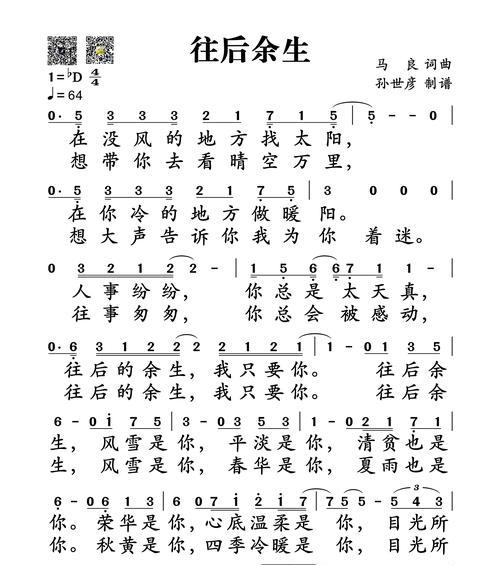 往后余生
马 良 词曲
1=♭D 4/4
孙世彦 制谱
♩=64
0· 5 3 3 3 2 1 7 1 5 | 5 - - 0 |
在没风的地方找太阳，
想带你去看晴空万里，
0· 5 3 3 3 2 1 7 5 | 3 0 0 0 |
在你冷的地方做暖阳。
想大声告诉你我为你着迷。
0 3 2 1 2 2 - | 1 5 6 6 7 1 1 - |
人事纷纷， 你总是太天真，
往事匆匆， 你总会被感动，
0· 6 3 1 2 2 2 2 1 2 1 | 1 - 0 1 3 5 |
往后的余生，我只要你。 往后余
往后的余生，我只要你。 往后余
6 - 0 1 7 5 | 3 - 0 3 5 3 | 1 - 0 2 1 7 1 |
生， 风雪是你， 平淡是你， 清贫也是
生， 风雪是你， 春华是你， 夏雨也是
6 - 0 6 1 3 | 6 0 7 1 2 1 7 | 7 5 5 - 5 4 3 |
你。 荣华是你，心底温柔是 你， 目光所
你。 秋黄是你，四季冷暖是 你， 目光所